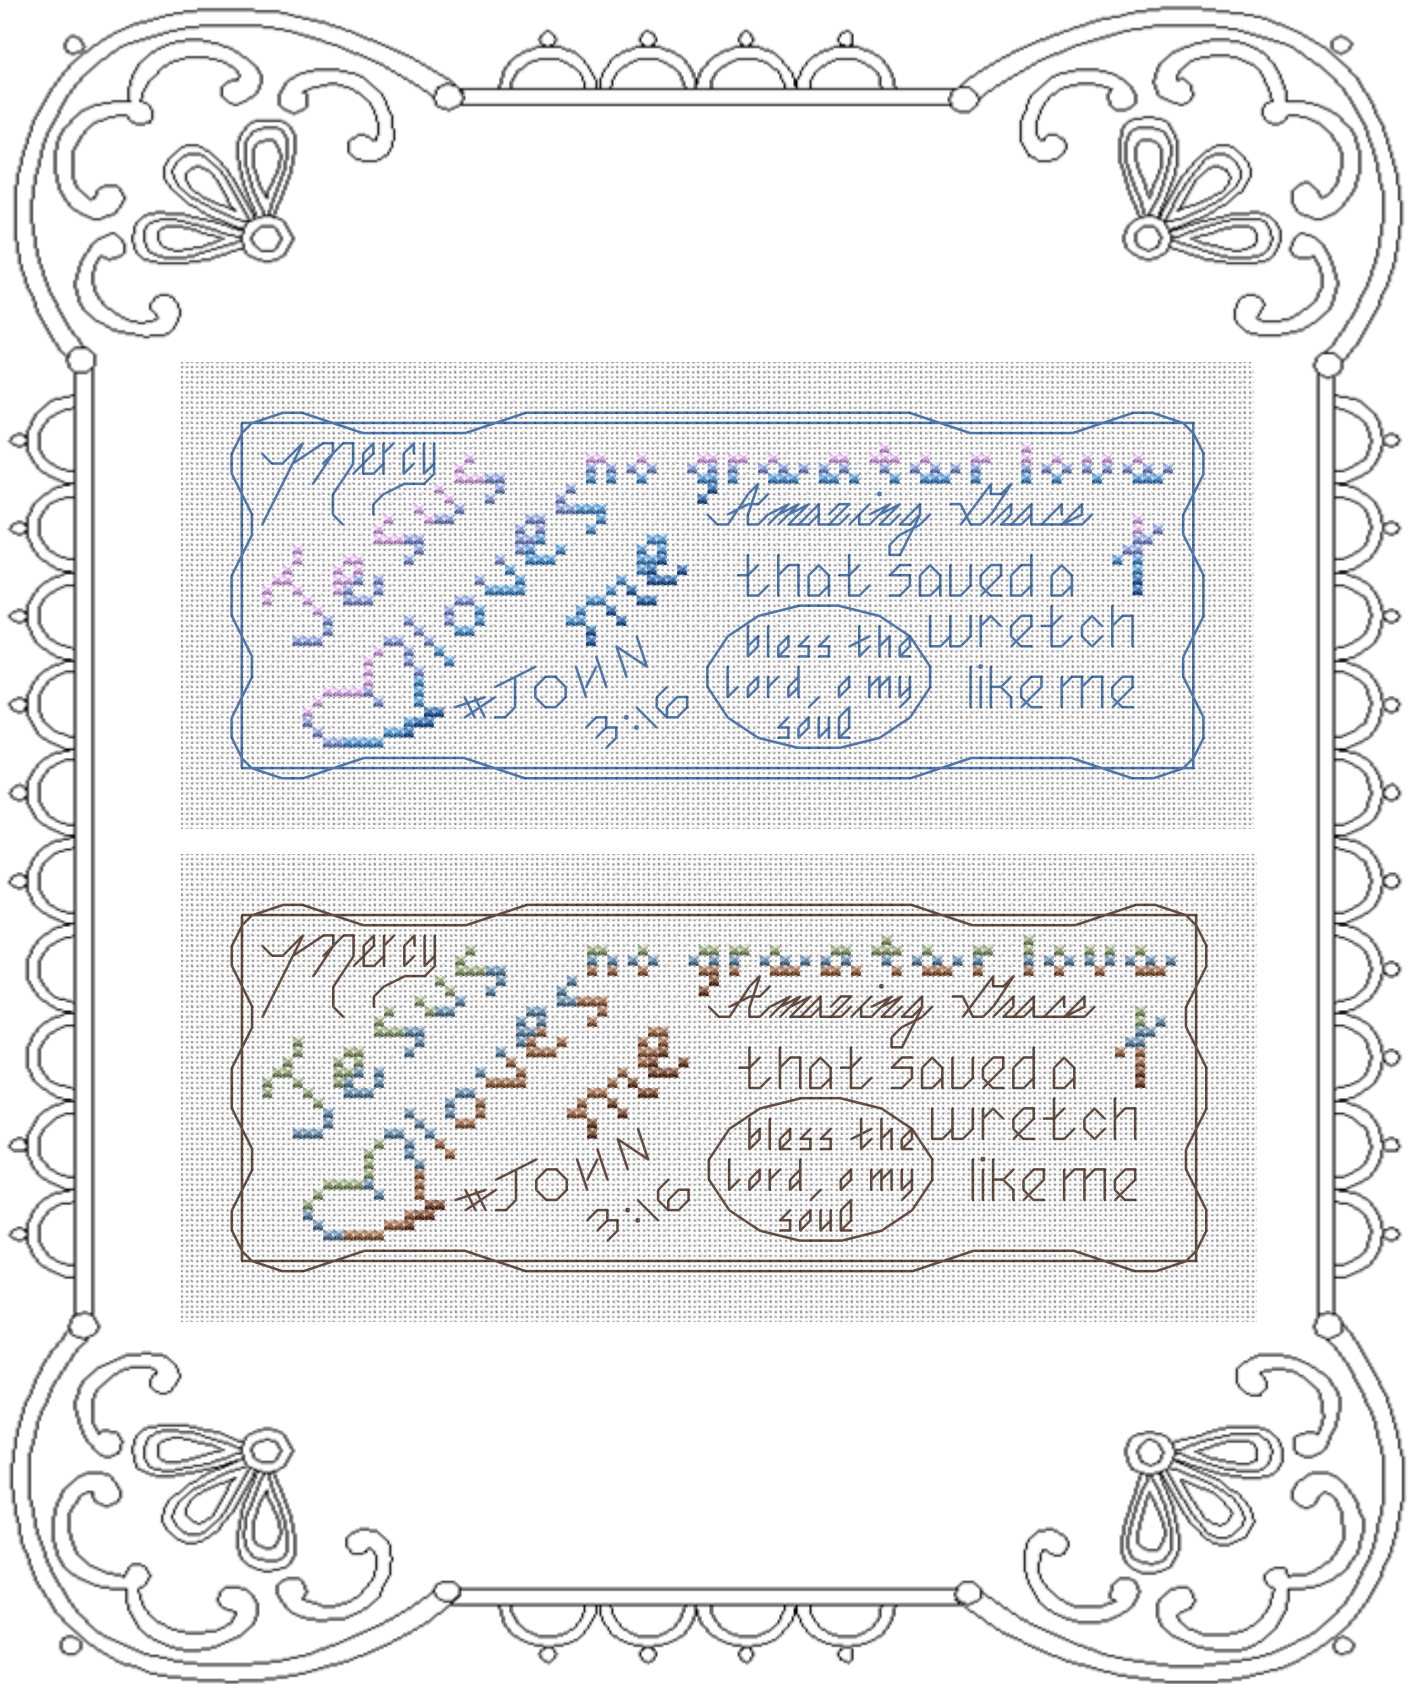 Mercy
Jesus
loves
me
no greater love
Amazing Grace
that saved a
wretch
like me
bless the
Lord, o my
soul
#JOHN
3:16
Mercy
Jesus
loves
me
no greater love
Amazing Grace
that saved a
wretch
like me
bless the
Lord, o my
soul
#JOHN
3:16